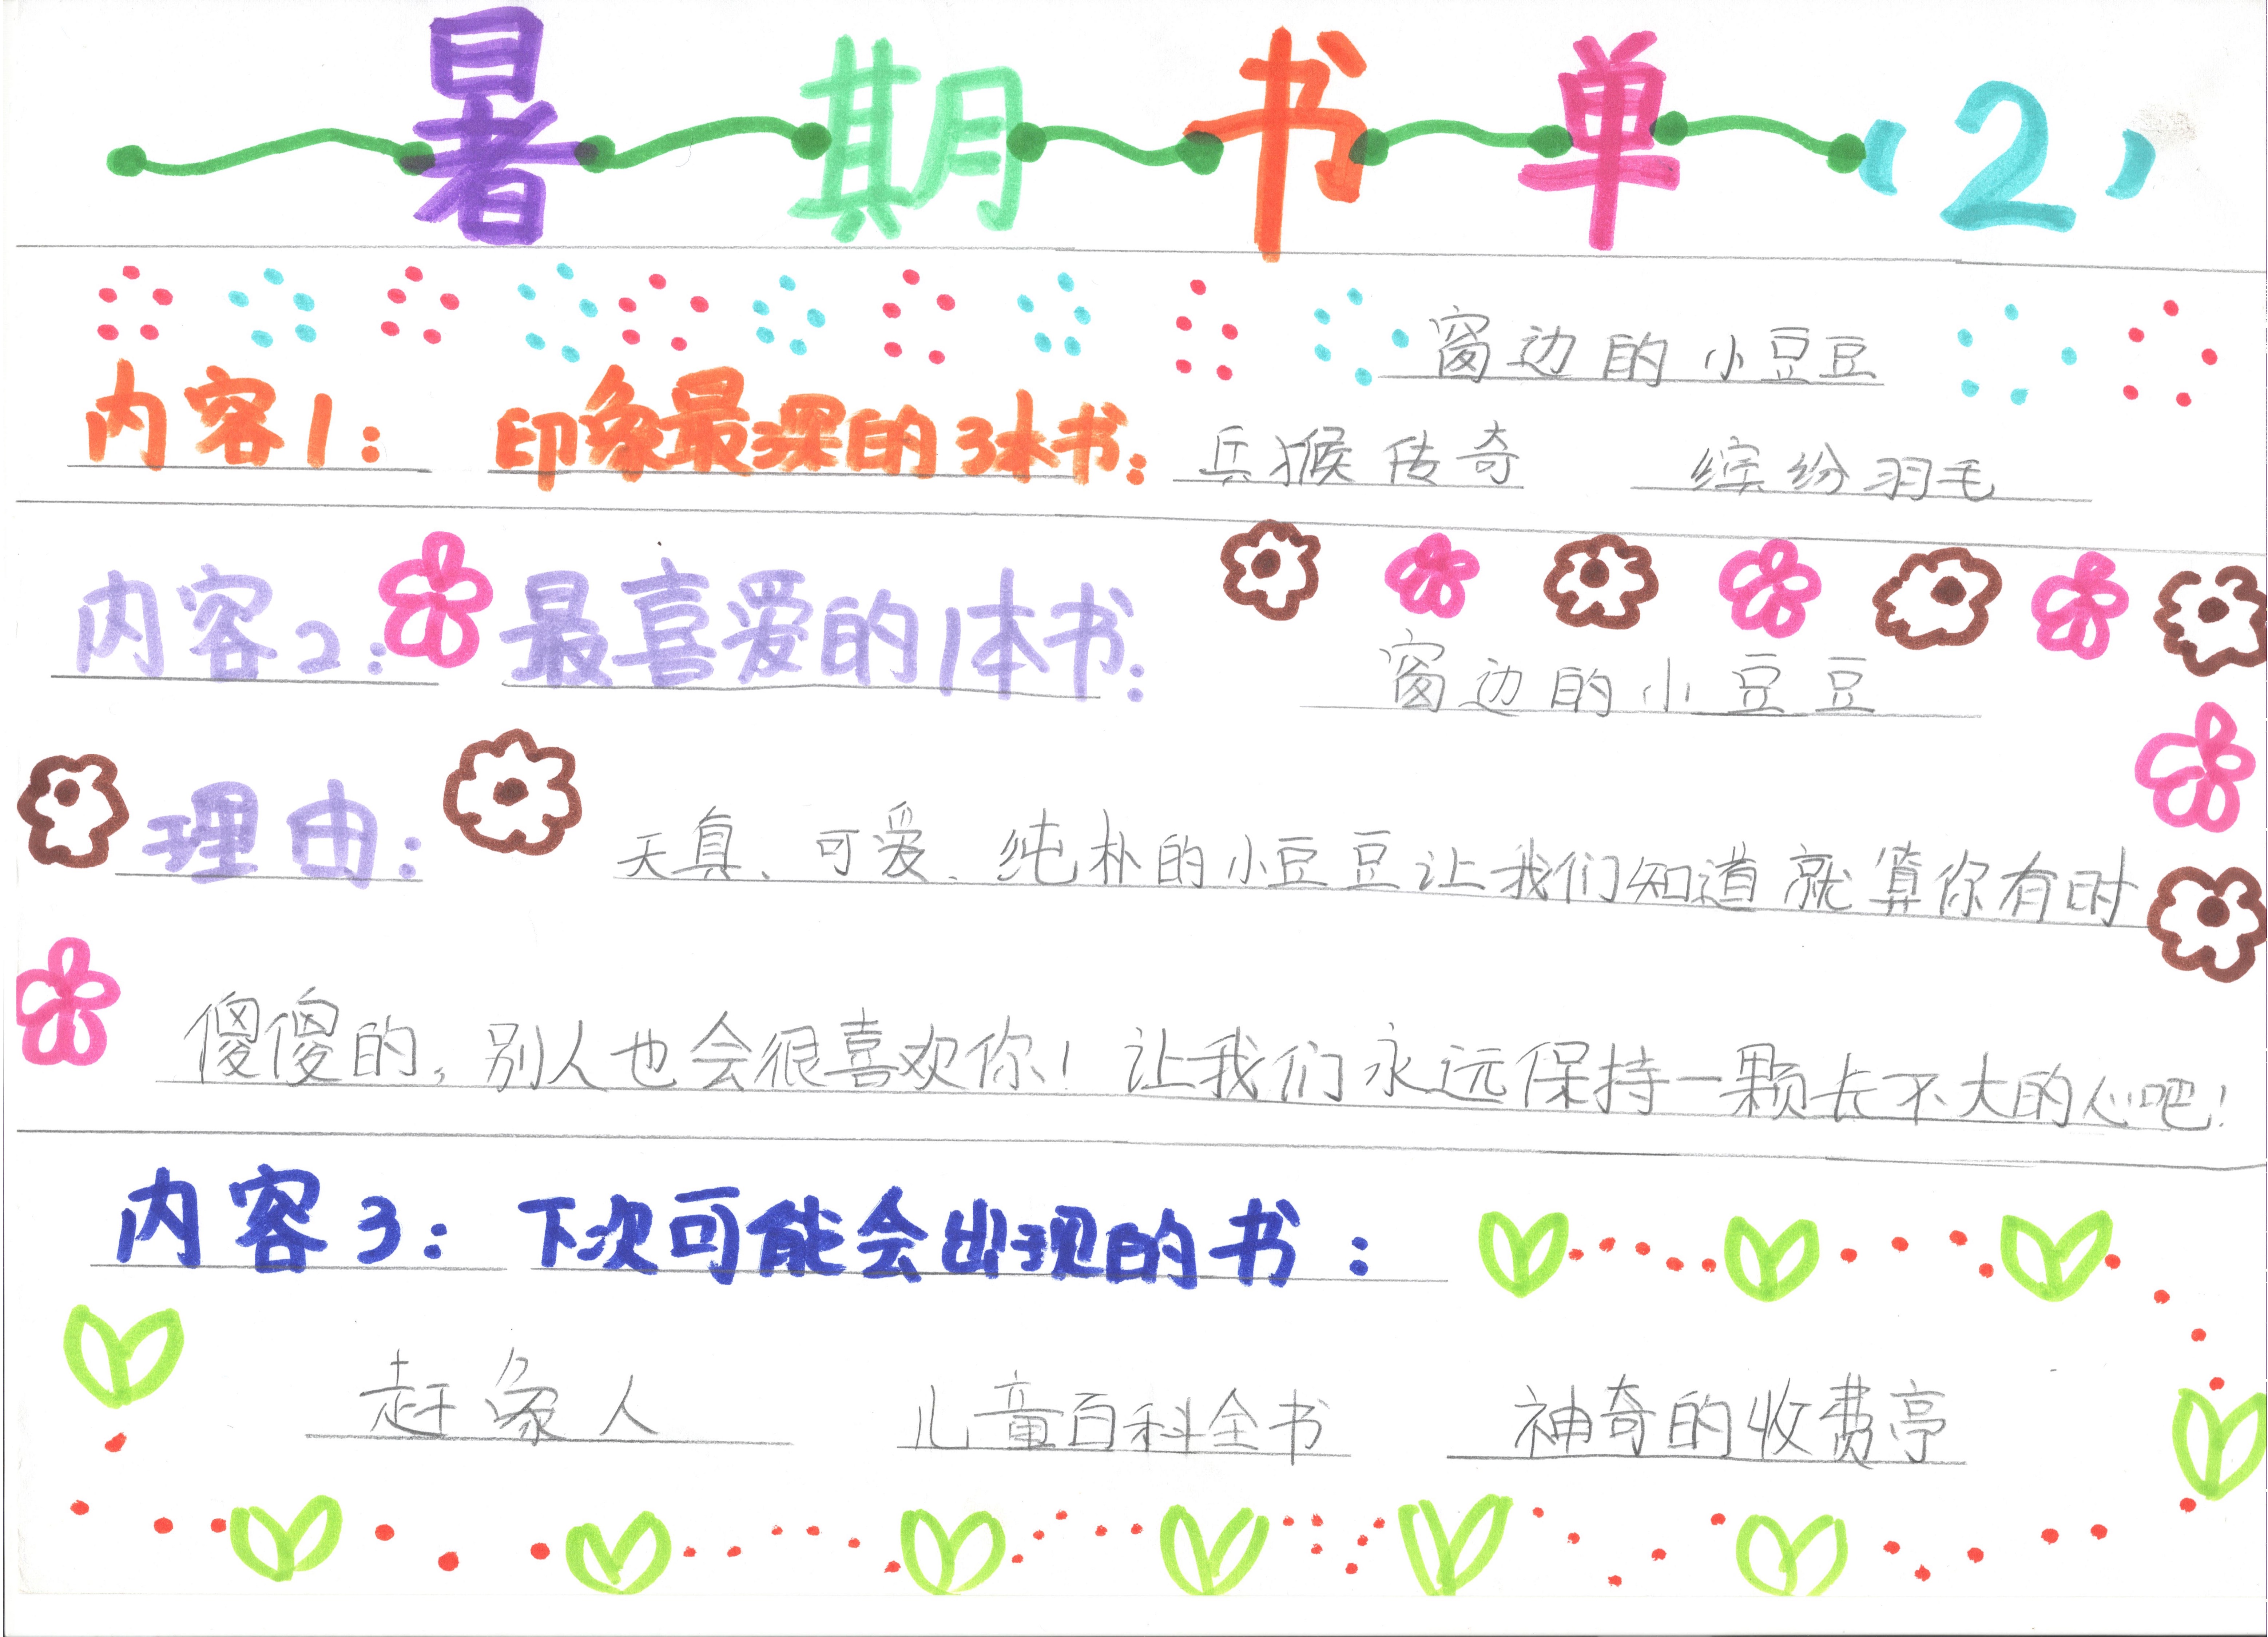 暑期书单（2）
窗边的小豆豆
内容1：印象最深的3本书：兵猴传奇 缤纷羽毛
内容2：最喜爱的1本书：
窗边的小豆豆
理由：天真、可爱、纯朴的小豆豆让我们知道就算你有时
傻傻的，别人也会很喜欢你！让我们永远保持一颗长不大的心吧！
内容3：下次可能会出现的书：
赶象人 儿童百科全书 神奇的收费亭